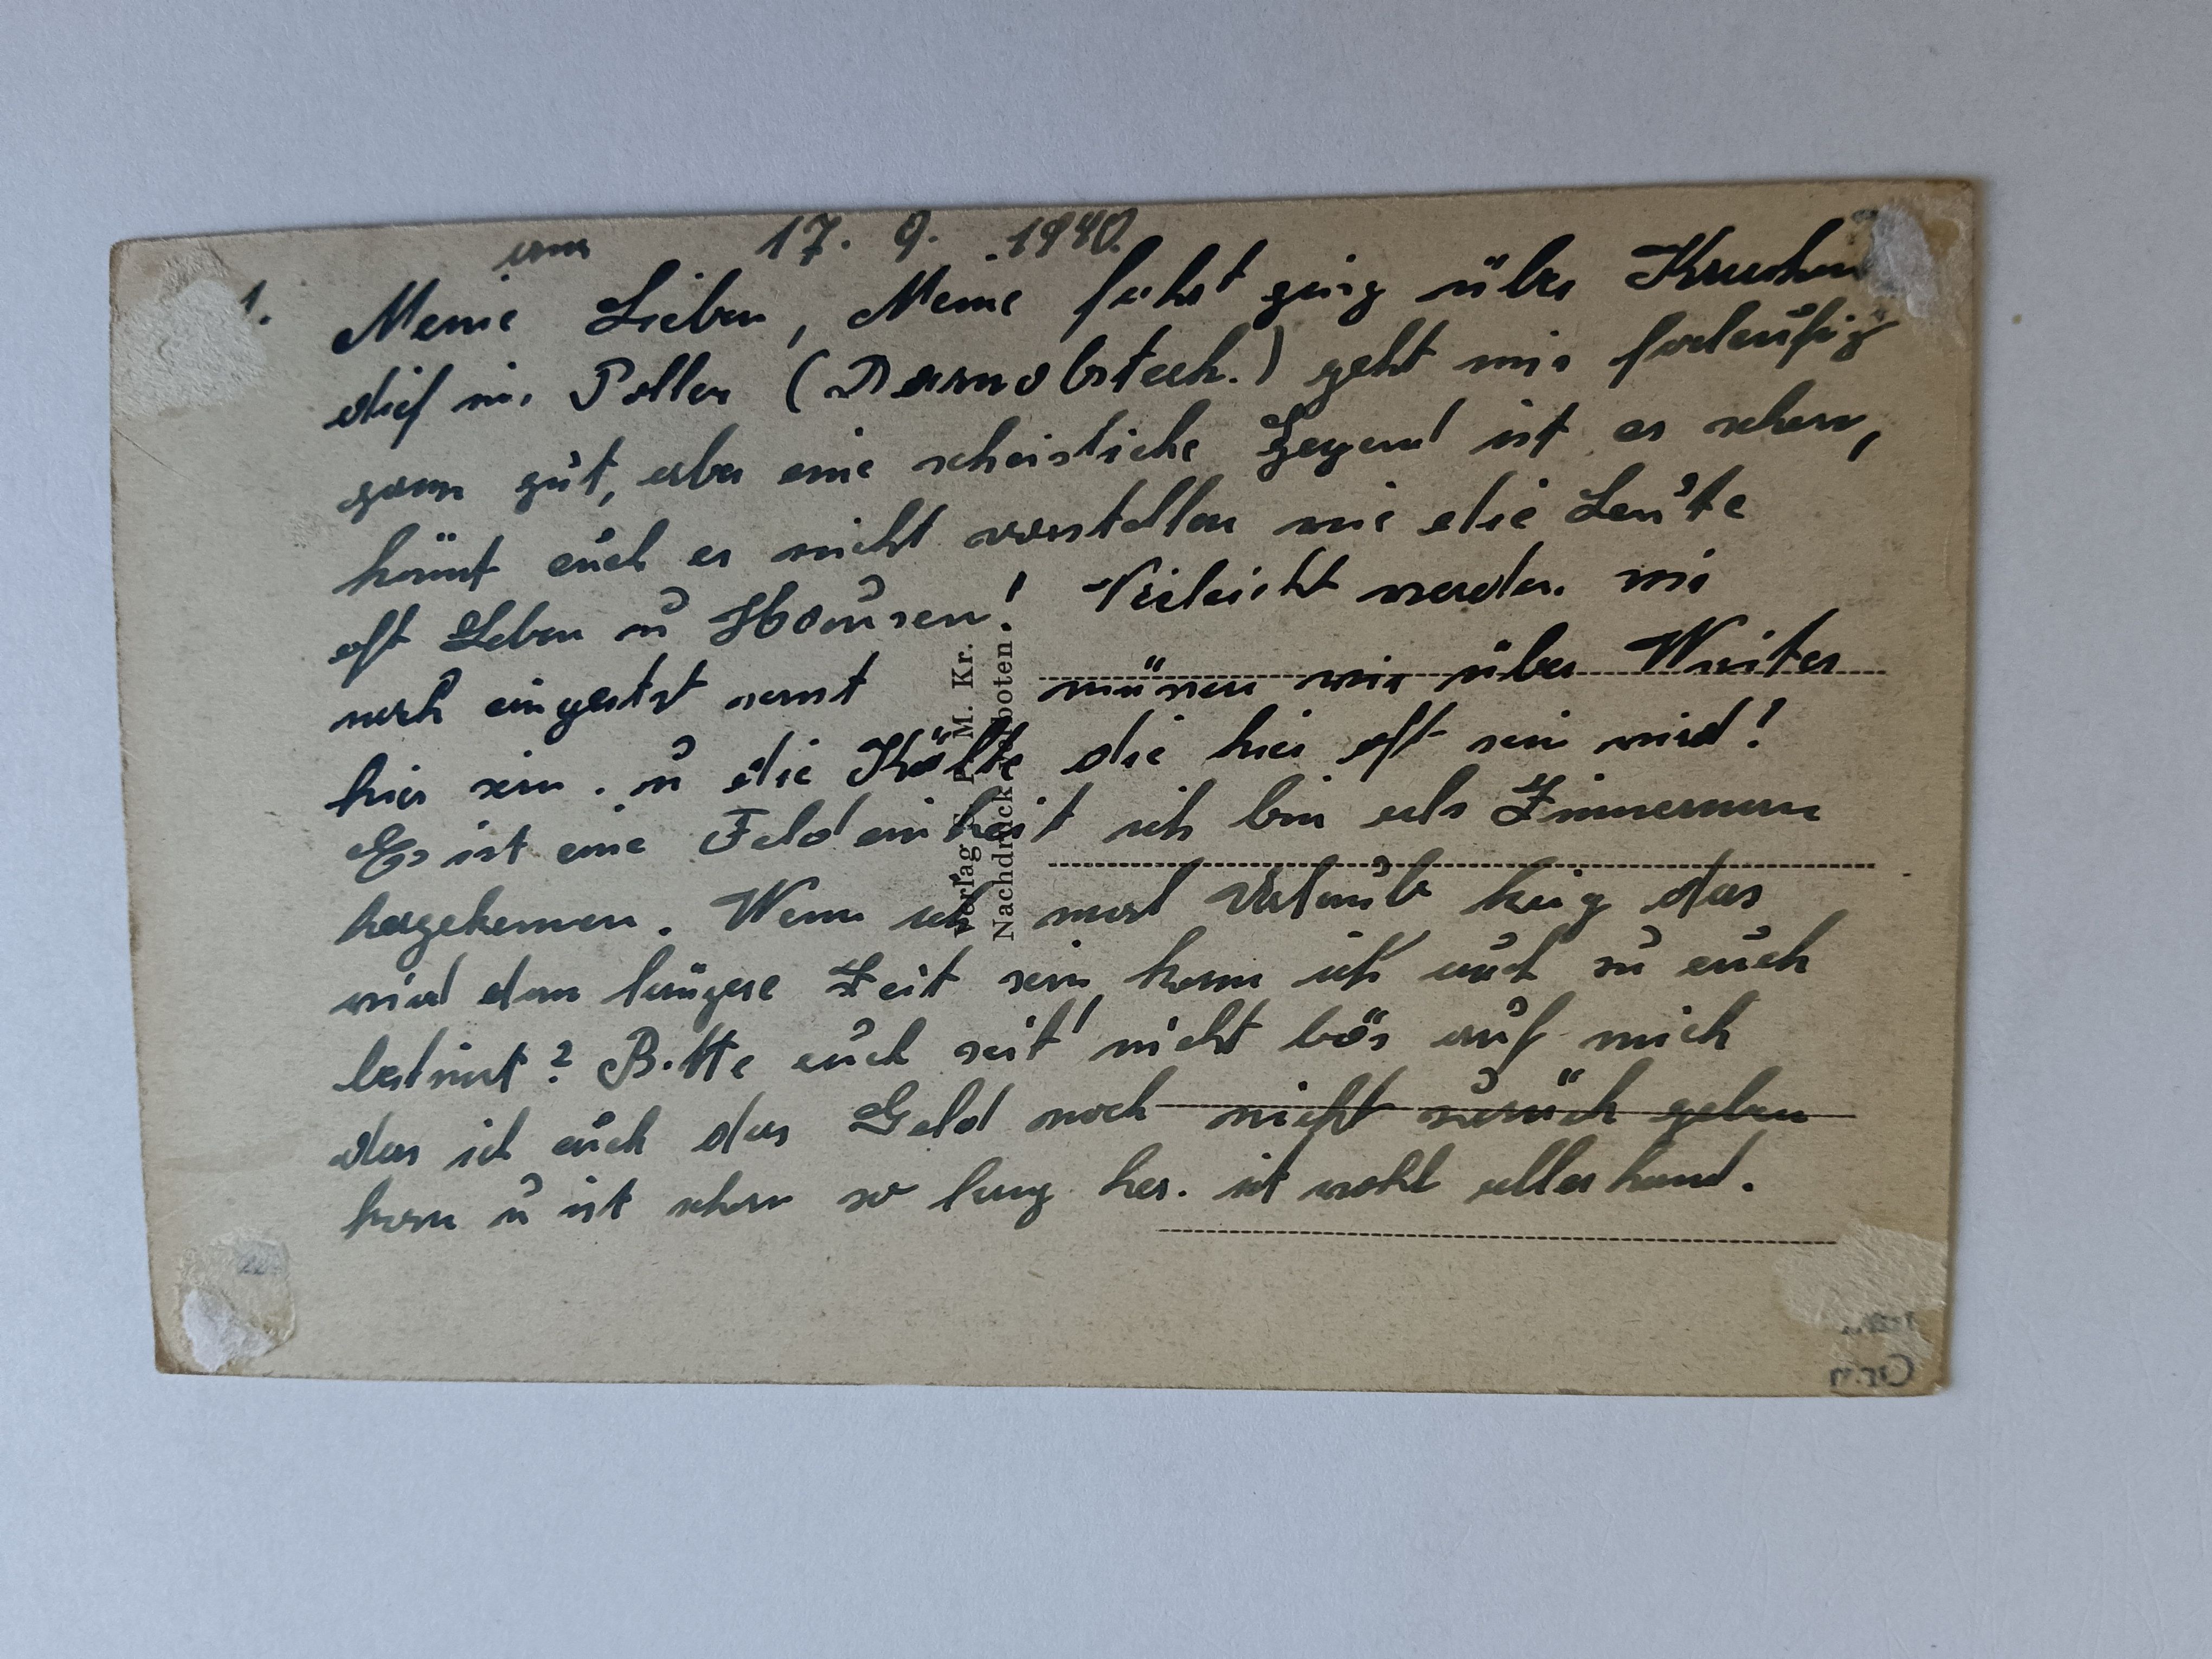 am 17. 9. 1940.
1.
Meine Lieben, Meine fahrt ging über Krakau
dief in Pollen (Darnobstech.) geht mir forleufig
ganz gut, aber eine scheisliche Gegend ist es schon,
könnt euch es nicht vorstellen wie die Leute
oft Leben u Hausen! Vieleicht werden wir
noch eingesetzt sonst müsen wir über Winter
hier sein. u die Kälte die hier oft sein wird!
Es ist eine Feldeinheit ich bin als Zimmerman
hergekommen. Wenn ich mal Urlaub krig das
wird dan längere Zeit sein kann ich auch zu euch
bestimt? Bitte euch seit nicht bös auf mich
das ich euch das Geld noch nicht zurück geben
kann u ist schon so lang her. ist wohl allerhand.
Verlag M. Kr.
Nachdruck verboten